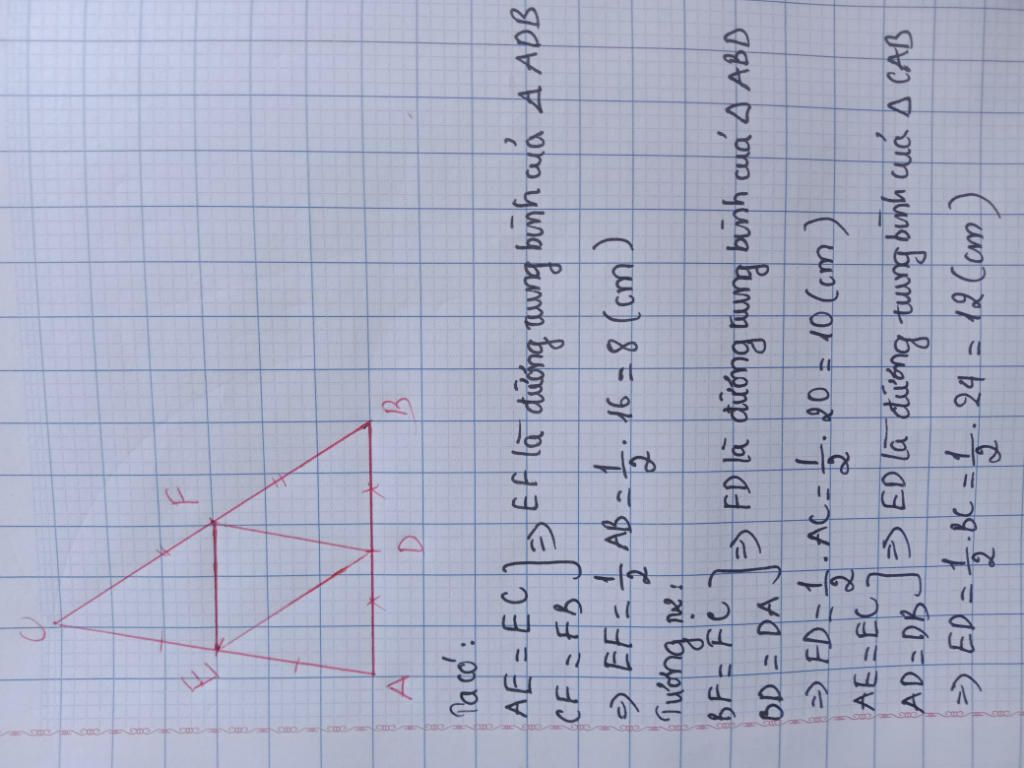 C
F
E
A
D
B
Ta có:
AE = EC
CF = FB } => EF là đường trung bình của Δ ADB
=> EF = 1/2 AB = 1/2 . 16 = 8 (cm)
Tương tự:
BF = FC
BD = DA } => FD là đường trung bình của Δ ABD
=> FD = 1/2 . AC = 1/2 . 20 = 10 (cm)
AE = EC
AD = DB } => ED là đường trung bình của Δ CAB
=> ED = 1/2 . BC = 1/2 . 24 = 12 (cm)